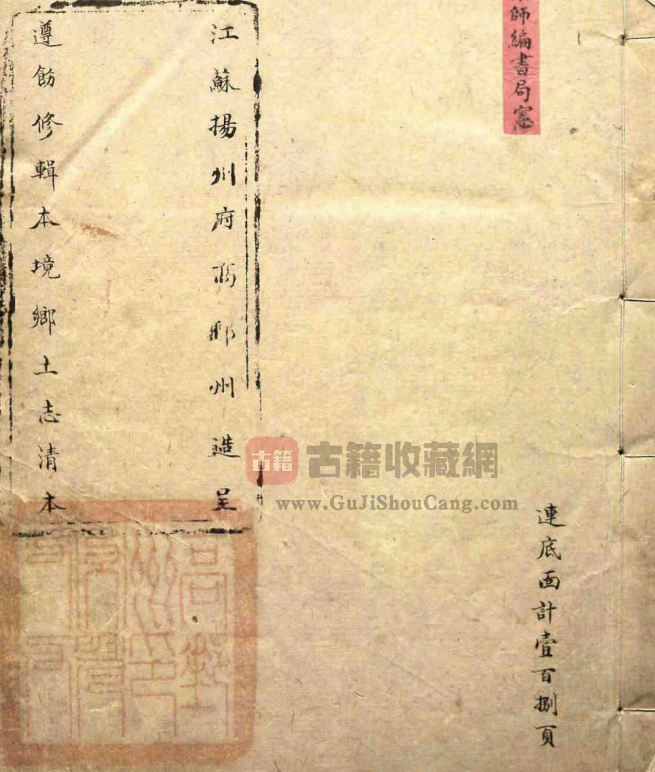 師編書局憲
連底面計壹百捌頁
江蘇揚州府高郵州造呈
遵飭修輯本境鄉土志清本
古籍
古籍收藏網
www.GuJiShouCang.com